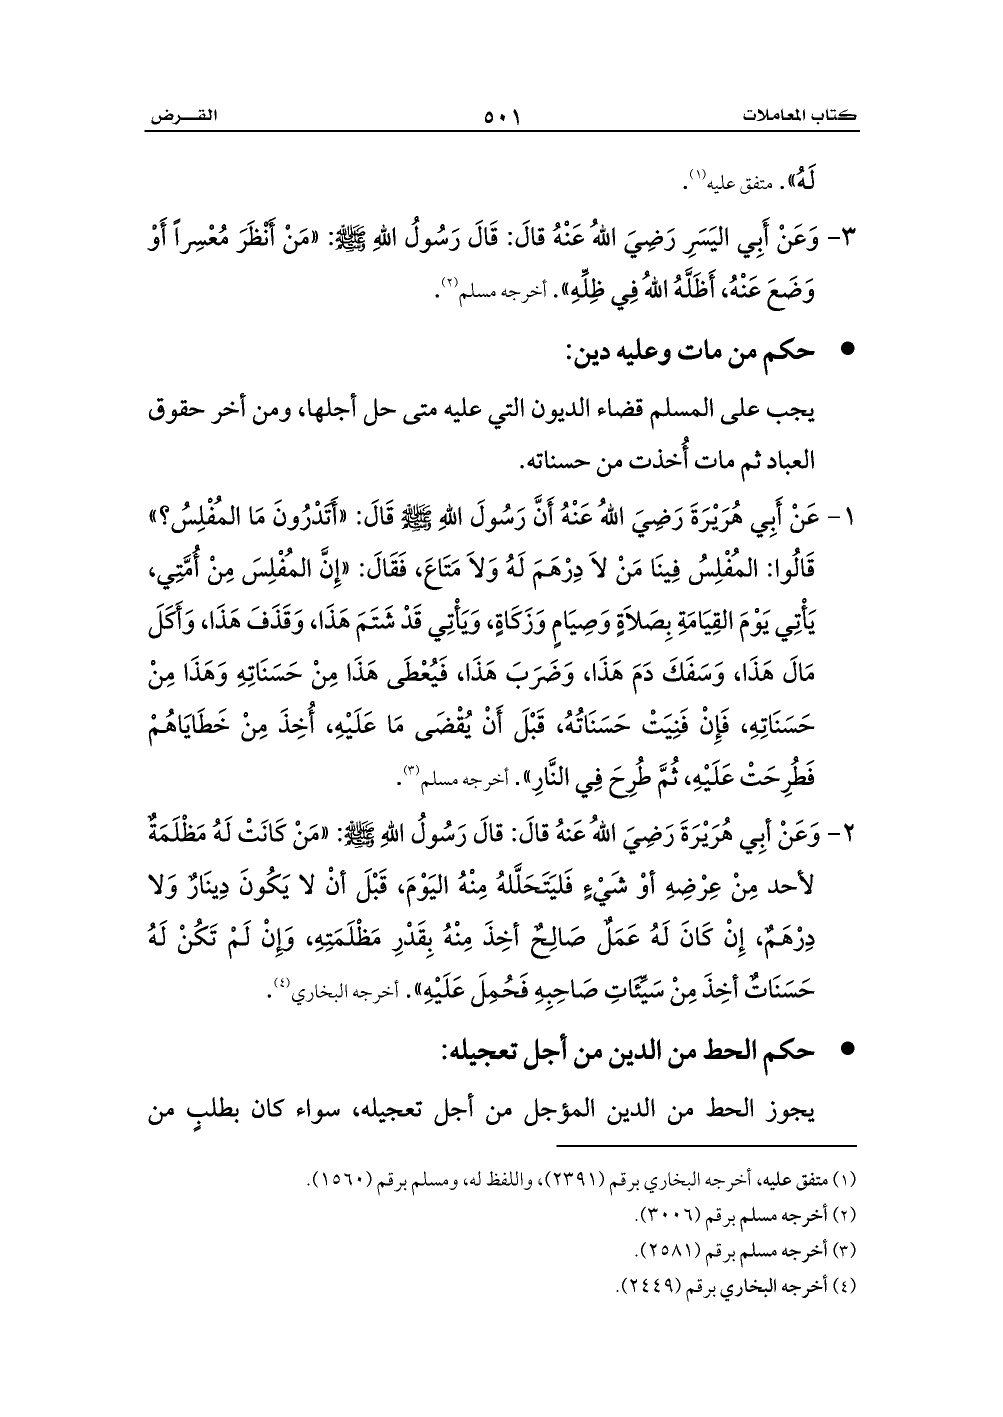 كتاب المعاملات ٥٠١ القـــرض
لَهُ». متفق عليه(١).
٣- وَعَنْ أَبِي اليَسَرِ رَضِيَ اللهُ عَنْهُ قالَ: قَالَ رَسُولُ اللهِ ﷺ: «مَنْ أَنْظَرَ مُعْسِراً أَوْ
وَضَعَ عَنْهُ، أَظَلَّهُ اللهُ فِي ظِلِّهِ». أخرجه مسلم(٢).
● حكم من مات وعليه دين:
يجب على المسلم قضاء الديون التي عليه متى حل أجلها، ومن أخر حقوق
العباد ثم مات أُخذت من حسناته.
١- عَنْ أَبِي هُرَيْرَةَ رَضِيَ اللهُ عَنْهُ أَنَّ رَسُولَ اللهِ ﷺ قَالَ: «أَتَدْرُونَ مَا المُفْلِسُ؟»
قَالُوا: المُفْلِسُ فِينَا مَنْ لاَ دِرْهَمَ لَهُ وَلاَ مَتَاعَ، فَقَالَ: «إِنَّ المُفْلِسَ مِنْ أُمَّتِي،
يَأْتِي يَوْمَ القِيَامَةِ بِصَلاَةٍ وَصِيَامٍ وَزَكَاةٍ، وَيَأْتِي قَدْ شَتَمَ هَذَا، وَقَذَفَ هَذَا، وَأَكَلَ
مَالَ هَذَا، وَسَفَكَ دَمَ هَذَا، وَضَرَبَ هَذَا، فَيُعْطَى هَذَا مِنْ حَسَنَاتِهِ وَهَذَا مِنْ
حَسَنَاتِهِ، فَإِنْ فَنِيَتْ حَسَنَاتُهُ، قَبْلَ أَنْ يُقْضَى مَا عَلَيْهِ، أُخِذَ مِنْ خَطَايَاهُمْ
فَطُرِحَتْ عَلَيْهِ، ثُمَّ طُرِحَ فِي النَّارِ». أخرجه مسلم(٣).
٢- وَعَنْ أبِي هُرَيْرَةَ رَضِيَ اللهُ عَنهُ قالَ: قالَ رَسُولُ اللهِ ﷺ: «مَنْ كَانَتْ لَهُ مَظْلَمَةٌ
لأحد مِنْ عِرْضِهِ أوْ شَيْءٍ فَليَتَحَلَّلهُ مِنْهُ اليَوْمَ، قَبْلَ أنْ لا يَكُونَ دِينَارٌ وَلا
دِرْهَمٌ، إِنْ كَانَ لَهُ عَمَلٌ صَالِحٌ أخِذَ مِنْهُ بِقَدْرِ مَظْلَمَتِهِ، وَإِنْ لَمْ تَكُنْ لَهُ
حَسَنَاتٌ أخِذَ مِنْ سَيِّئَاتِ صَاحِبِهِ فَحُمِلَ عَلَيْهِ». أخرجه البخاري(٤).
● حكم الحط من الدين من أجل تعجيله:
يجوز الحط من الدين المؤجل من أجل تعجيله، سواء كان بطلبٍ من
(١) متفق عليه، أخرجه البخاري برقم (٢٣٩١)، واللفظ له، ومسلم برقم (١٥٦٠).
(٢) أخرجه مسلم برقم (٣٠٠٦).
(٣) أخرجه مسلم برقم (٢٥٨١).
(٤) أخرجه البخاري برقم (٢٤٤٩).